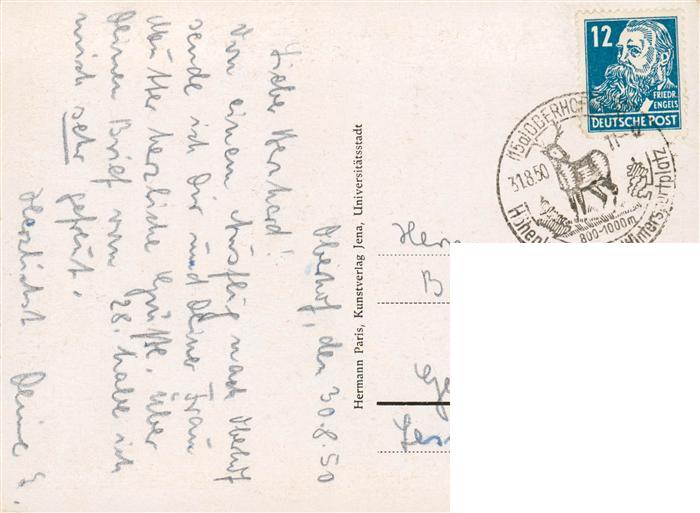 Oberhof, den 30.8.50
Lieber Gerhard!
Von einem Ausflug nach Oberhof
sende ich Dir und Deiner Frau
Mutter herzliche Grüße. Über
Deinen Brief vom 28. habe ich
mich sehr gefreut.
Herzlichst Deine G.
Hermann Paris, Kunstverlag Jena, Universitätsstadt
12
FRIEDR.
ENGELS
DEUTSCHE POST
(15a) OBERHOF
31.8.50
11-12
800-1000m
Wintersportplatz
Herr
B
Ge